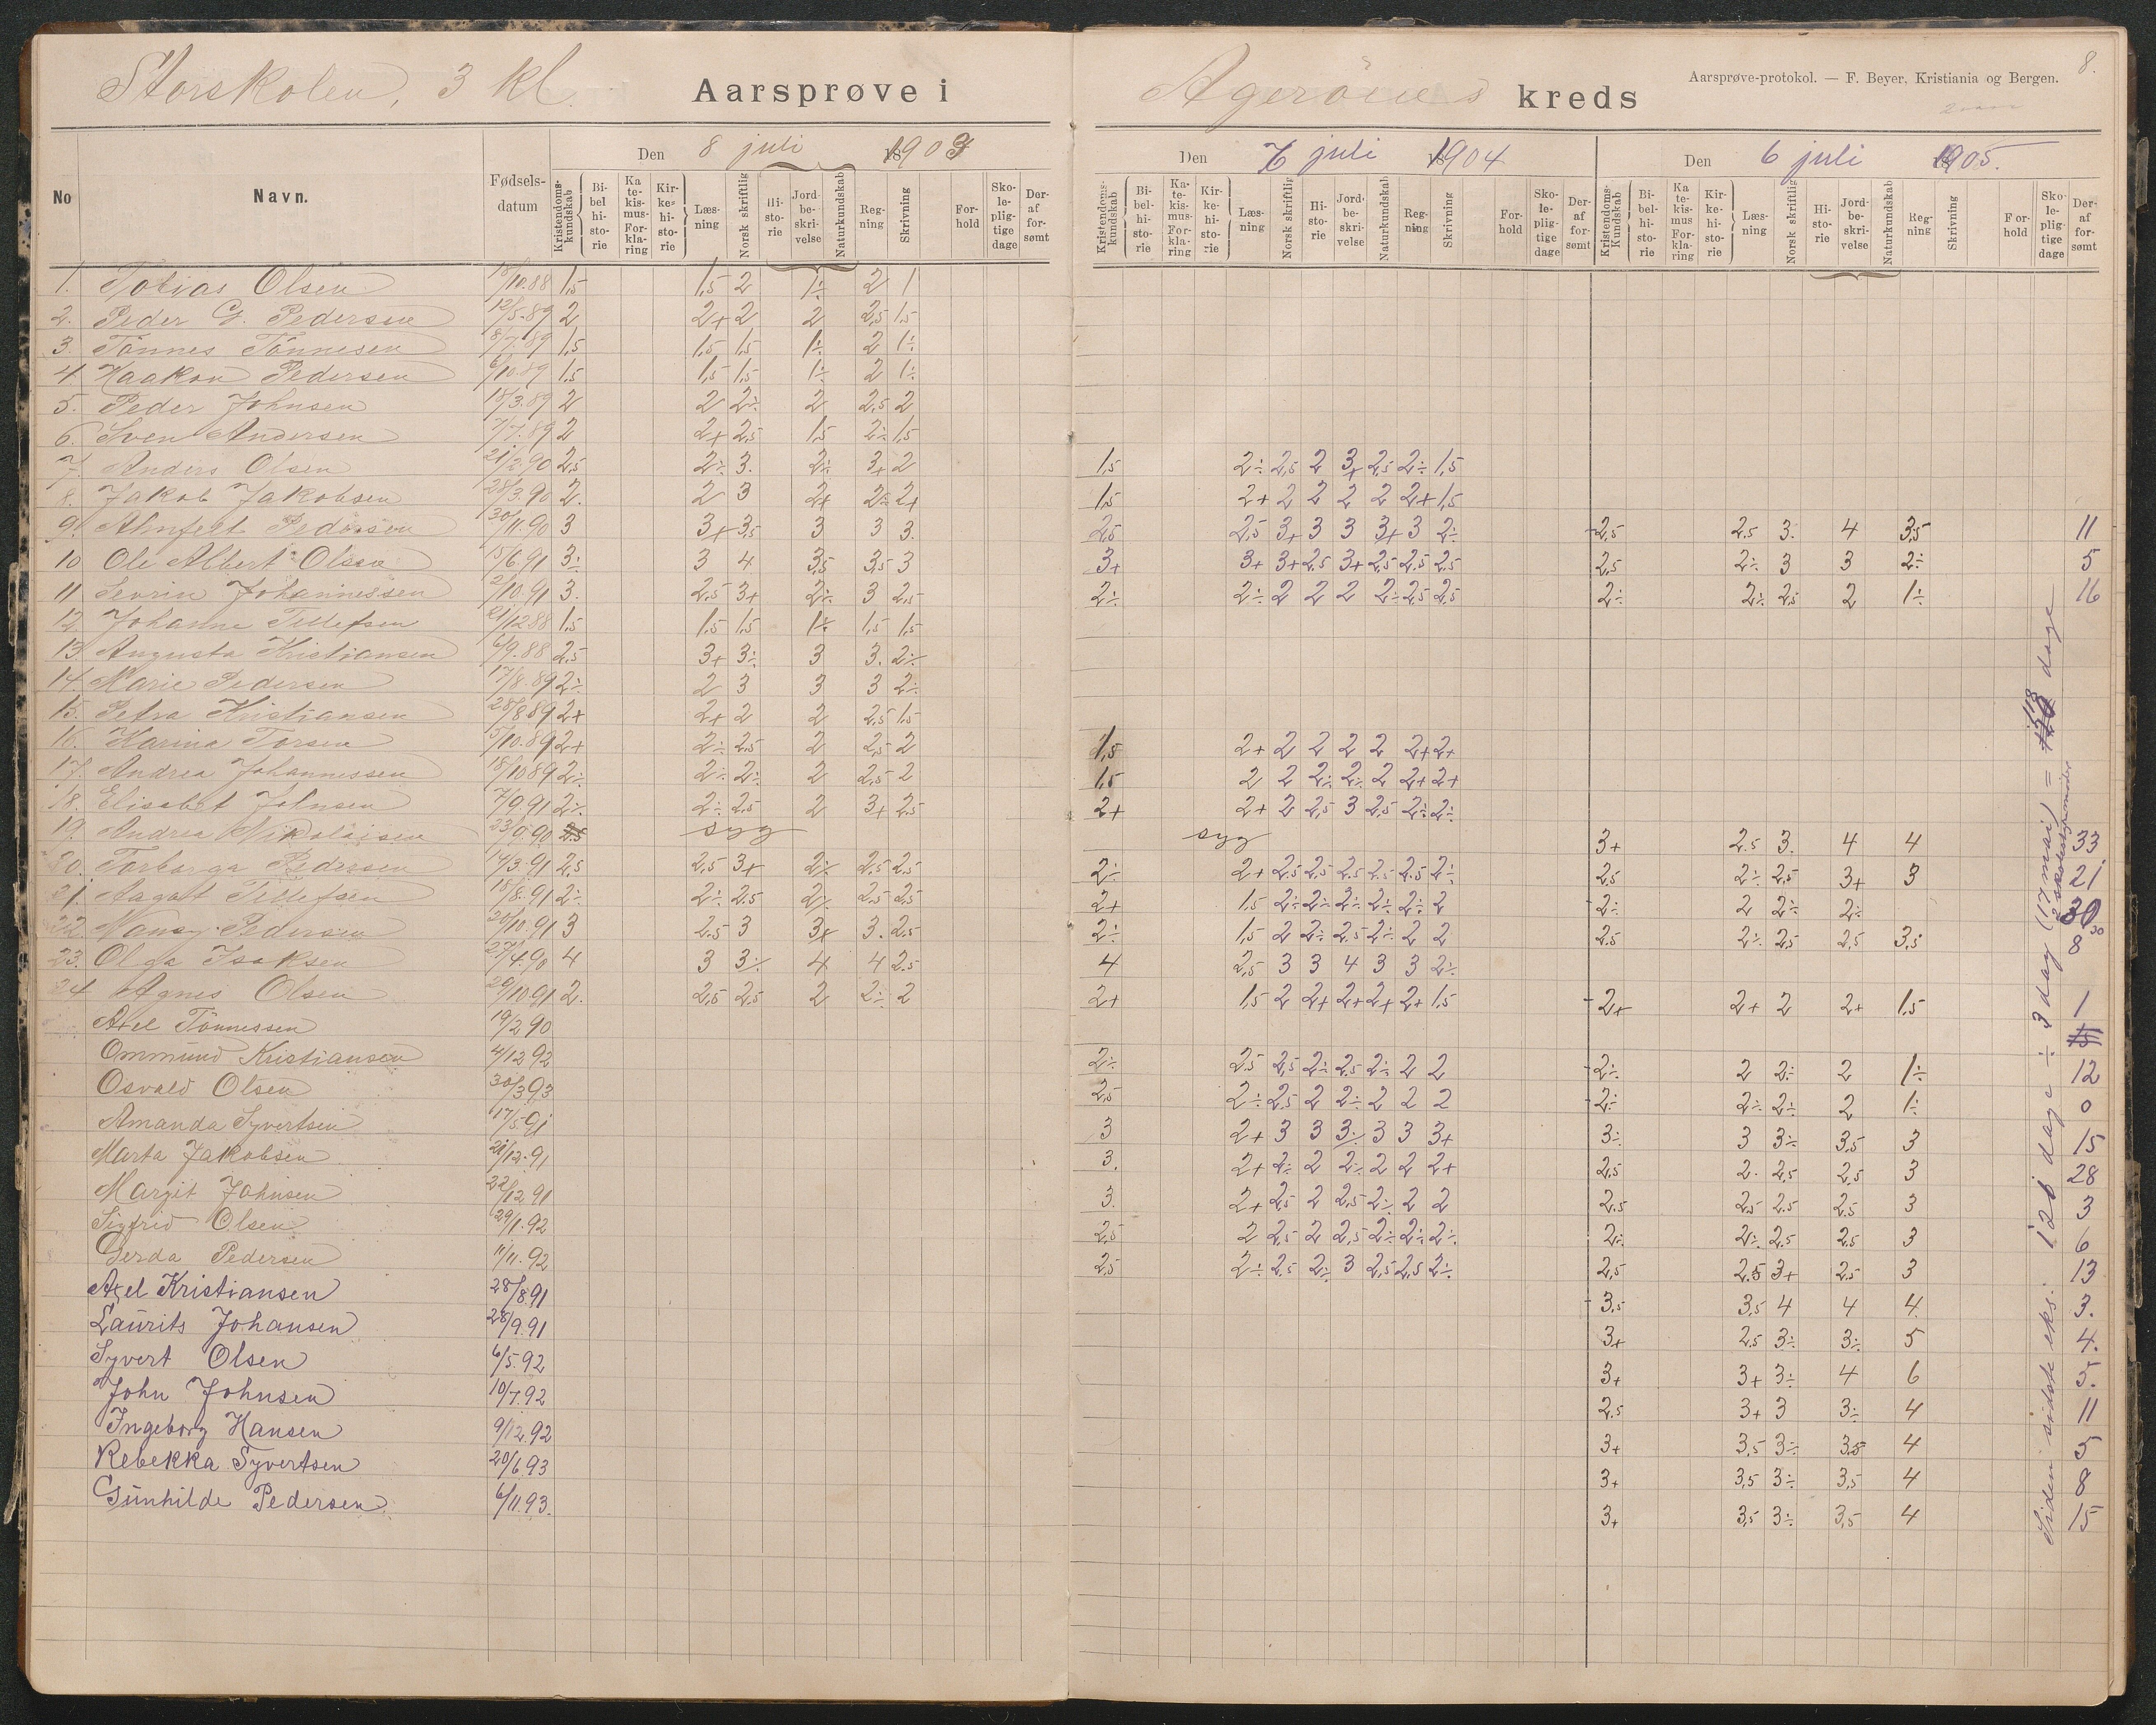 Storskolen, 3 kl. Aarsprøve i Agerøens kreds
Aarsprøve-protokol. — F. Beyer, Kristiania og Bergen. 8.
Den 8 juli 1903
Den 7 juli 1904
Den 6 juli 1905.
No Navn. Fødsels-datum Kristendoms-kundskab Bi-bel hi-sto-rie Ka te-kis-mus-For-kla-ring Kir-ke-hi-sto-rie Læs-ning Norsk skriftlig Hi-sto-rie Jord-be-skri-velse Naturkundskab Reg-ning Skrivning For-hold Sko-le-plig-tige dage Der-af for-sømt
Kristendoms-kundskab Bi-bel-hi-sto-rie Ka-te-kis-mus-For-kla-ring Kir-ke-hi-sto-rie Læs-ning Norsk skriftlig Hi-sto-rie Jord-be-skri-velse Naturkundskab Reg-ning Skrivning For-hold Sko-le-plig-tige dage Der-af for-sømt
Kristendoms-Kundskab Bi-bel-hi-sto-rie Ka te-kis-mus For-kla-ring Kir-ke-hi-sto-rie Læs-ning Norsk skriftlig Hi-sto-rie Jord-be-skri-velse Naturkundskab Reg-ning Skrivning For-hold Sko-le-plig-tige dage Der-af for-sømt
1. Tobias Olsen 18/10.88 1,5 1,5 2 1÷ 2 1
2. Peder G. Pedersen 12/5.89 2 2+ 2 2 2,5 1,5
3. Tönnes Tönnesen 8/7.89 1,5 1,5 1,5 1÷ 2 1÷
4. Haakon Pedersen 6/10.89 1,5 1,5 1,5 1÷ 2 1÷
5. Peder Johnsen 18/3.89 2 2 2÷ 2 2,5 2
6. Sven Andersen 7/7.89 2 2+ 2,5 1,5 2÷ 1,5
7. Anders Olsen 21/2.90 2,5 2÷ 3. 2÷ 3+ 2 1,5 2÷ 2,5 2 3+ 2,5 2÷ 1,5
8. Jakob Jakobsen 28/3.90 2. 2 3 2+ 2÷ 2+ 1,5 2+ 2 2 2 2 2+ 1,5
9. Alnfert Pedersen 30/11.90 3 3+ 3,5 3 3 3. 2,5 2,5 3+ 3 3 3+ 3 2÷ 2,5 2.5 3. 4 3,5 11
10 Ole Albert Olsen 15/6.91 3÷ 3 4 3,5 3,5 3 3+ 3+ 3+ 2,5 3+ 2,5 2,5 2,5 2,5 2÷ 3 3 2÷ 5
11 Sevrin Johannessen 2/10.91 3. 2,5 3+ 2÷ 3 2,5 2÷ 2÷ 2 2 2 2÷ 2,5 2,5 2÷ 2÷ 2,5 2 1÷ 16
12 Johanne Tellefsen 21/12 88 1,5 1,5 1,5 1÷ 1,5 1,5
13 Augusta Kristiansen 6/9.88 2,5 3+ 3÷ 3 3. 2÷
14. Marie Pedersen 17/8.89 2÷ 2 3 3 3 2÷
15. Petra Kristiansen 28/8.89 2+ 2+ 2 2 2,5 1,5
16. Karina Torsen 5/10.89 2+ 2÷ 2,5 2 2,5 2 1,5 2+ 2 2 2 2 2+ 2+
17. Andrea Johannessen 18/10 89 2÷ 2÷ 2÷ 2 2,5 2 1,5 2 2 2÷ 2÷ 2 2+ 2+
18. Elisabet Johnsen 7/9.91 2÷ 2÷ 2,5 2 3+ 2,5 2+ 2+ 2 2,5 3 2,5 2÷ 2÷
19. Andrea Nikolaisen 23/9.90 2,5 syg syg 3+ 2.5 3. 4 4 33
20. Torborga Pedersen 14/3.91 2,5 2,5 3+ 2÷ 2,5 2,5 2÷ 2+ 2,5 2,5 2,5 2,5 2,5 2÷ 2,5 2÷ 2,5 3+ 3 21
21. Aagot Tellefsen 15/8.91 2÷ 2÷ 2.5 2÷ 2,5 2,5 2+ 1,5 2÷ 2÷ 2÷ 2÷ 2÷ 2 2÷ 2 2÷ 2÷ 30
22. Nancy Pedersen 20/10.91 3 2.5 3 3+ 3. 2,5 2÷ 1,5 2 2÷ 2,5 2÷ 2 2 2.5 2÷ 2,5 2,5 3,5 8
23. Olga Isaksen 27/4.90 4 3 3÷ 4 4 2.5 4 2,5 3 3 4 3 3 2÷
24 Agnes Olsen 29/10.91 2. 2,5 2,5 2 2÷ 2 2+ 1,5 2 2+ 2+ 2+ 2+ 1,5 2+ 2+ 2 2+ 1,5 1
Axel Tönnessen 19/2 90
Ommund Kristiansen 4/12 92 2÷ 2,5 2,5 2÷ 2,5 2÷ 2 2 2÷ 2 2÷ 2 1÷ 12
Osvald Olsen 30/3.93 2,5 2÷ 2,5 2 2÷ 2 2 2 2÷ 2÷ 2÷ 2 1÷ 0
Amanda Syvertsen 17/5.91 3 2+ 3 3 3÷ 3 3 3+ 3÷ 3 3÷ 3,5 3 15
Marta Jakobsen 21/12.91 3. 2+ 2÷ 2 2÷ 2 2 2+ 2,5 2. 2,5 2,5 3 28
Margit Johnsen 22/12 91 3. 2+ 2,5 2 2,5 2÷ 2 2 2.5 2,5 2.5 2.5 3 3
Sigfrid Olsen 29/1.92 2,5 2 2,5 2 2,5 2÷ 2÷ 2÷ 2÷ 2÷ 2,5 2.5 3 6
Gerda Pedersen 11/11.92 2,5 2÷ 2,5 2÷ 3 2,5 2,5 2÷ 2,5 2.5 3+ 2.5 3 13
Axel Kristiansen 28/8.91 3,5 3,5 4 4 4. 3.
Laurits Johansen 28/9.91 3+ 2.5 3÷ 3÷ 5 4.
Syvert Olsen 6/5.92 3+ 3+ 3÷ 4 6 5.
John Johnsen 10/7.92 2.5 3+ 3 3÷ 4 11
Ingeborg Hansen 9/12.92 3+ 3,5 3÷ 3,5 4 5
Rebekka Syvertsen 20/6.93 3+ 3,5 3÷ 3,5 4 8
Gunhilde Pedersen 6/11.93. 3+ 3,5 3÷ 3,5 4 15
Siden sidste eks. 121 dage ÷ 3 dag (17 mai) = 118 dage